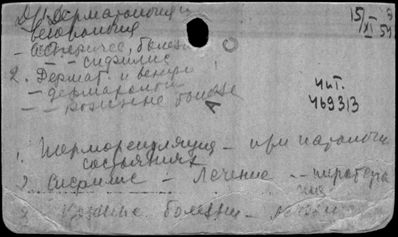 Дерматология и
венерология
- венерич. болезни
- " - сифилис
15/XI - 54
2. Дермат. и венер.
- дерматология
- кожные болез
чит.
469313
А
1. Терморегуляция - при патологич
состояниях
2. Сифилис - лечение -- пиротера
пия
3. Кожные болезни -